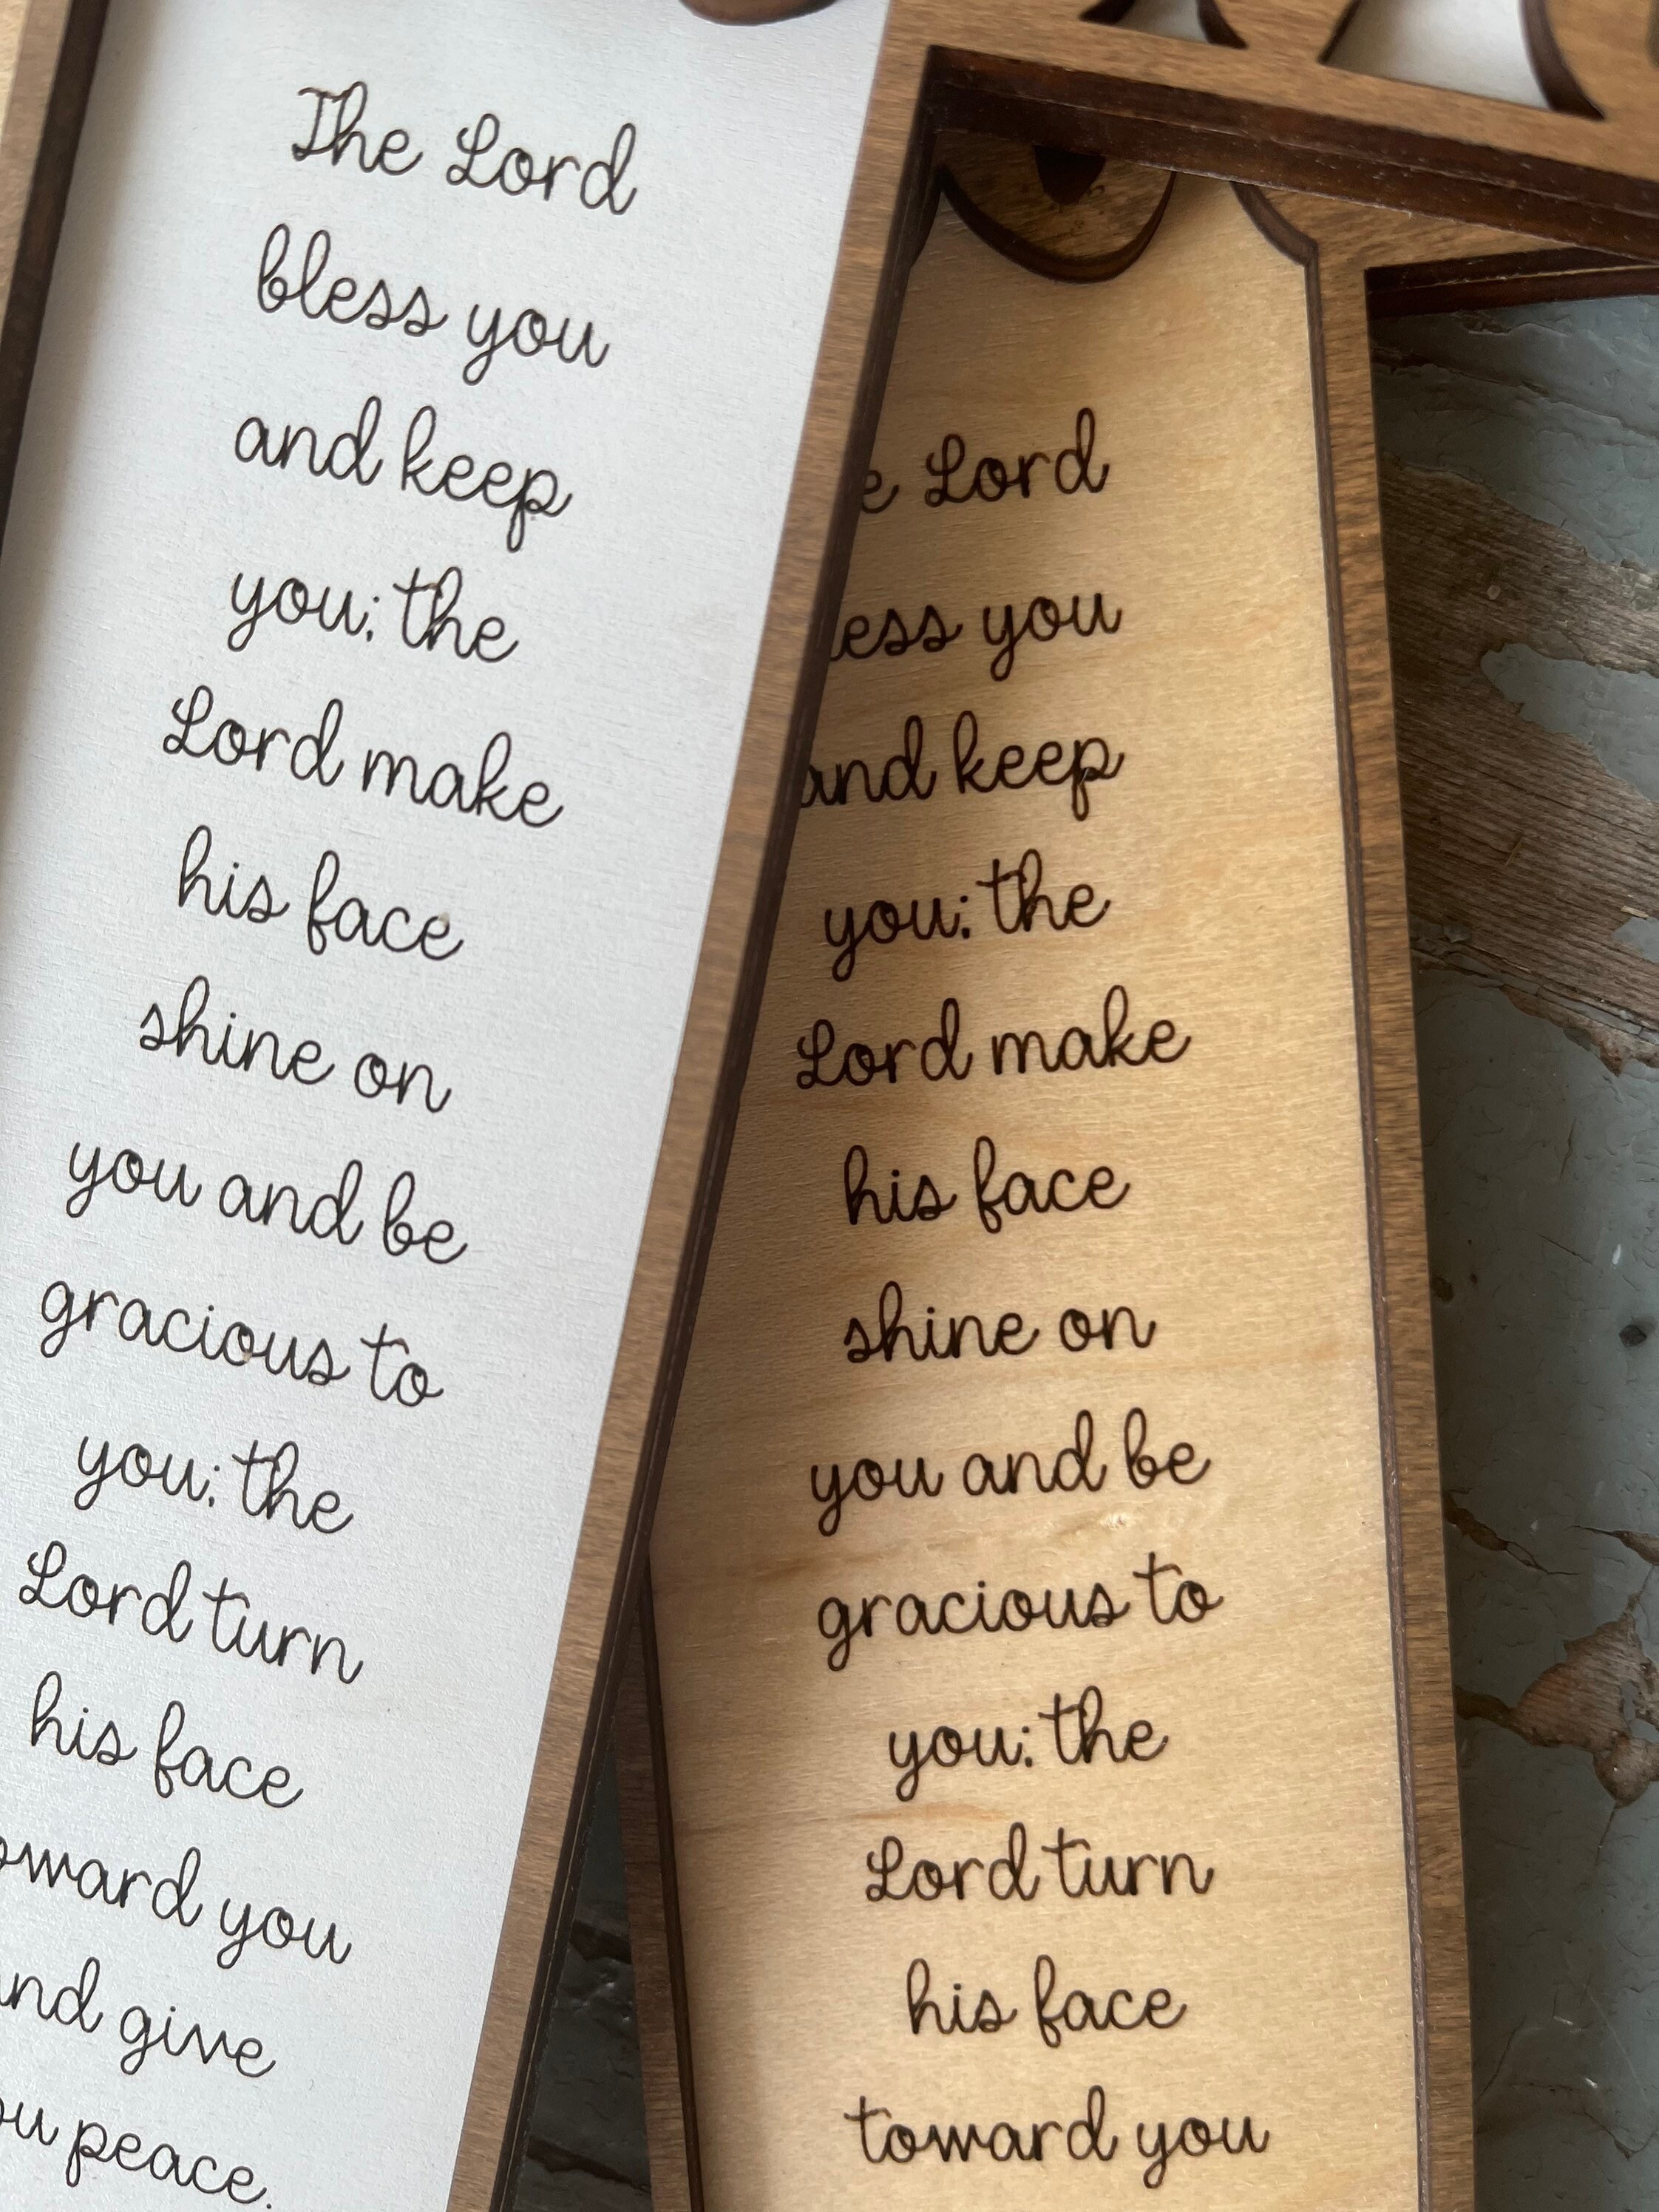 The Lord
bless you
and keep
you; the
Lord make
his face
shine on
you and be
gracious to
you; the
Lord turn
his face
oward you
nd give
ou peace.
e Lord
ess you
and keep
you; the
Lord make
his face
shine on
you and be
gracious to
you; the
Lord turn
his face
toward you